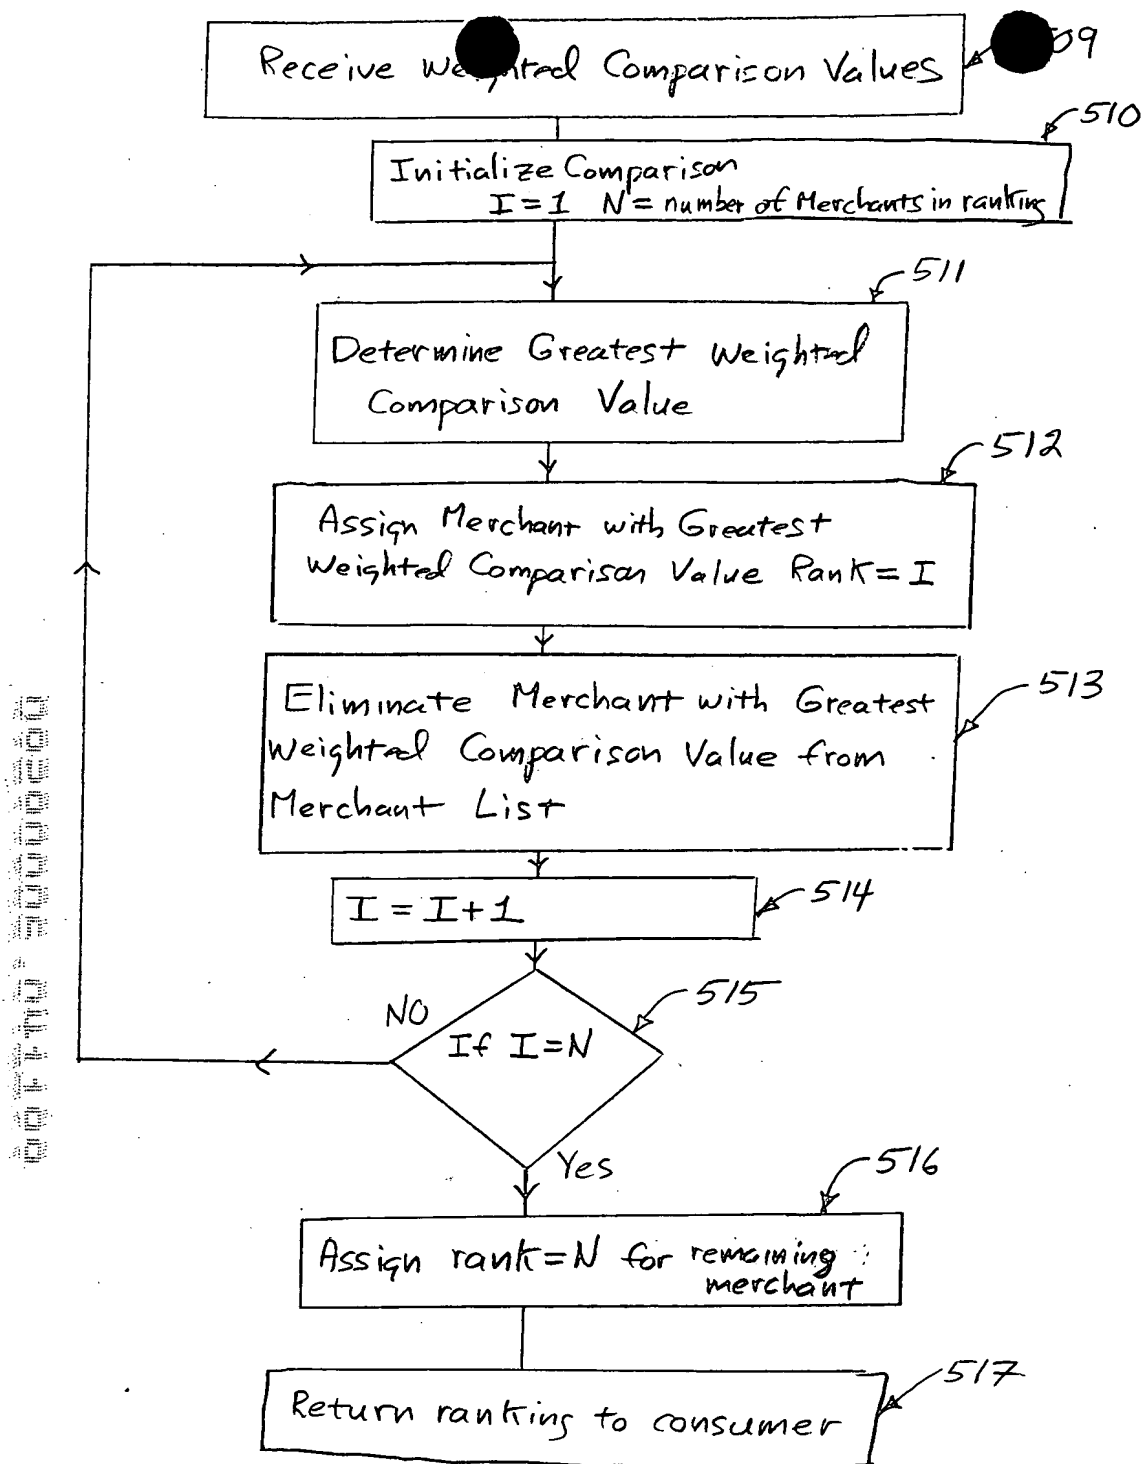 Receive Weighted Comparison Values
09
510
Initialize Comparison
I = 1 N = number of Merchants in ranking
511
Determine Greatest Weighted
Comparison Value
512
Assign Merchant with Greatest
Weighted Comparison Value Rank = I
513
Eliminate Merchant with Greatest
Weighted Comparison Value from
Merchant List
514
I = I+1
515
NO
If I=N
Yes
516
Assign rank=N for remaining
merchant
517
Return ranking to consumer